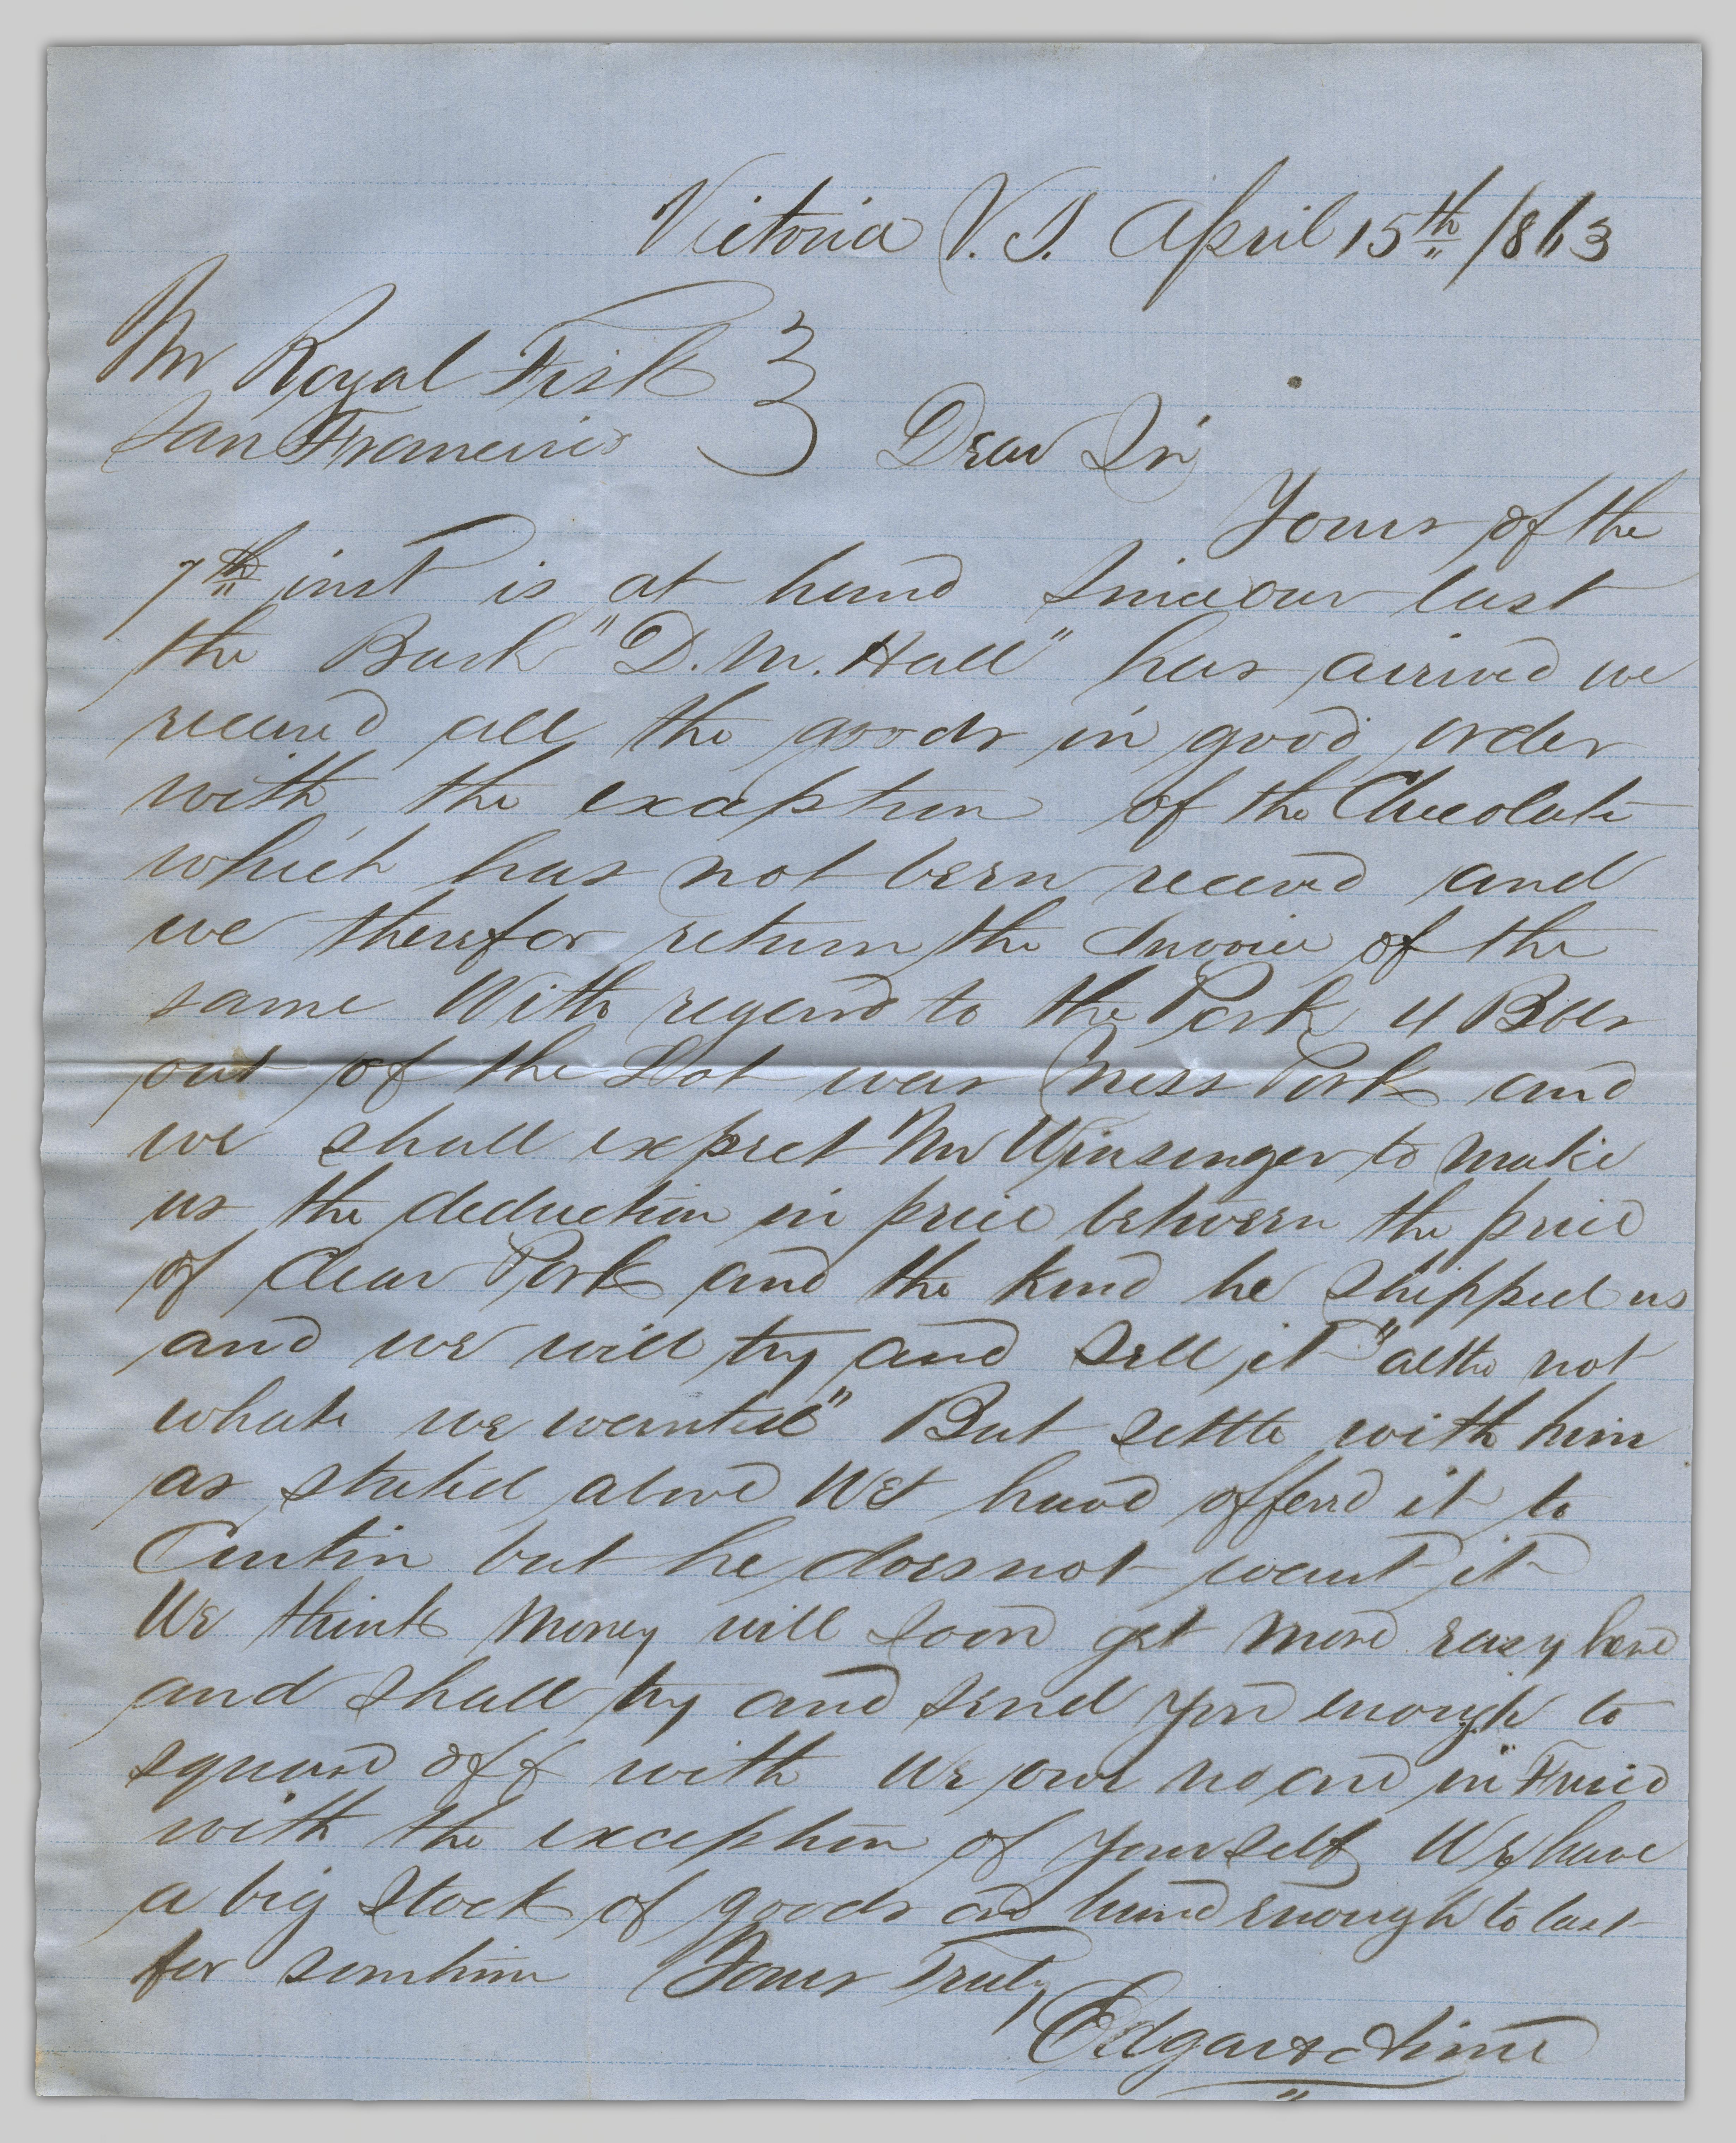 Victoria V.I. April 15th /863
Mr Royal Fisk
San Francisco Dear Sir
Yours of the
7th inst is at hand Since our last
the Bark "D.M. Hall" has arrived we
received all the goods in good order
with the exception of the Chocolate
which has not been received and
we therefor return the Invoice of the
same With regard to the Pork 4 Bbls
out of the Lot was Mess Pork and
we shall expect Mr Winsinger to make
us the deduction in price between the price
of Clear Pork and the kind he shipped us
and we will try and sell it "altho not
what we wanted" But settle with him
as stated above We have offerd it to
but he does not want it
We think Money will soon get more easy here
and shall try and send you enough to
square off with We owe no one in Frisco
with the exception of yourself We have
a big stock of goods on hand enough to last
for somtime Yours Truly
Edgar &